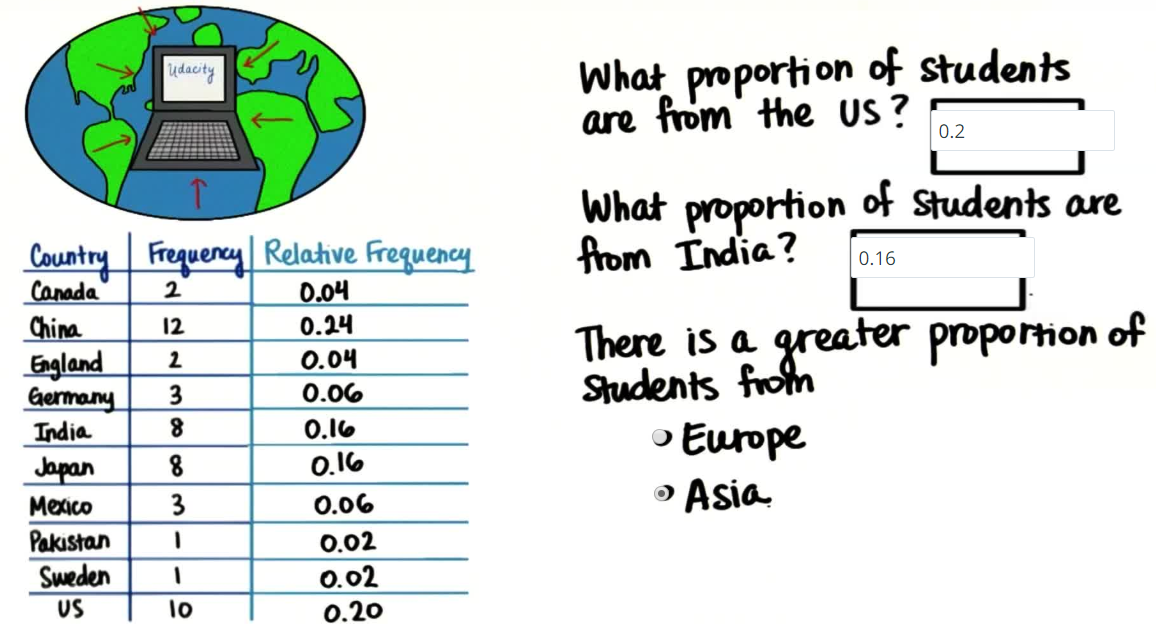 Udacity
Country Frequency Relative Frequency
Canada 2 0.04
China 12 0.24
England 2 0.04
Germany 3 0.06
India 8 0.16
Japan 8 0.16
Mexico 3 0.06
Pakistan 1 0.02
Sweden 1 0.02
US 10 0.20
What proportion of students
are from the US?
0.2
What proportion of students are
from India?
0.16
There is a greater proportion of
students from
Europe
Asia.